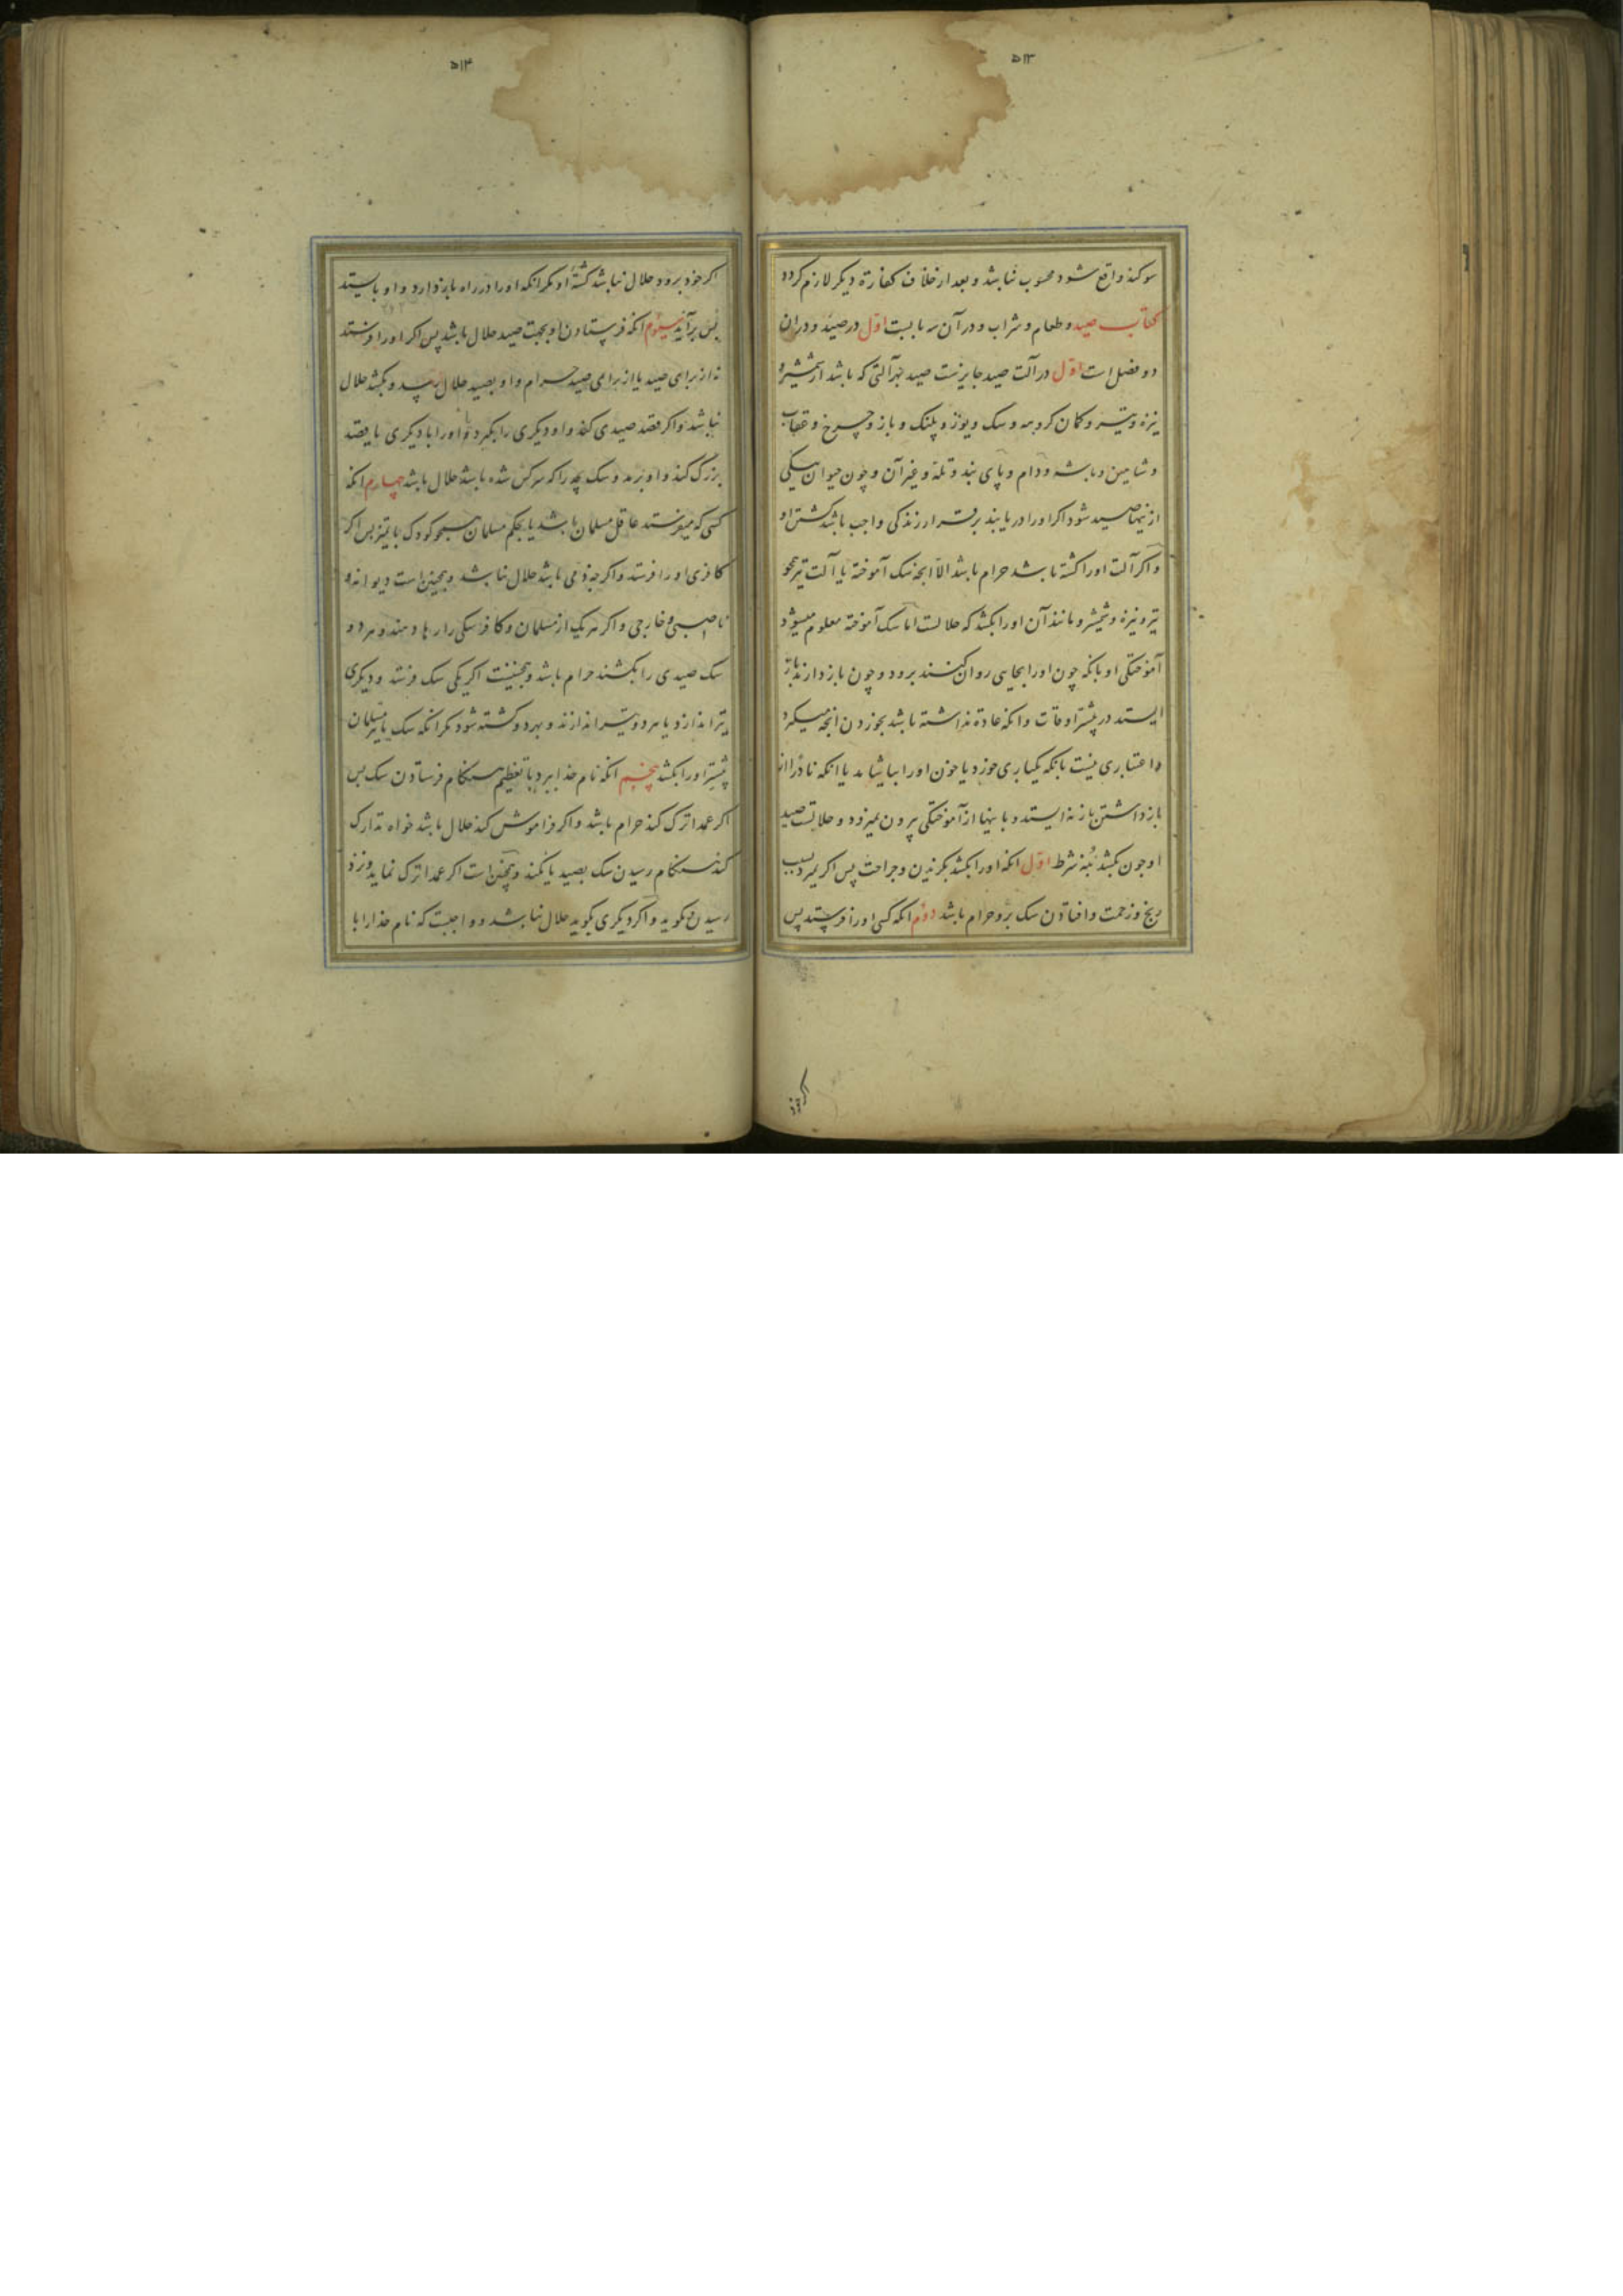 ۵۱۳
سوکند واقع شود محسوب نباشد و بعد از خلاف کفارة دیکر لازم کردد
کتاب صید و طعام و شراب و در آن سه بابست اول در صید و در ان
دو فصل است اول در آلت صید جایزست صید بهر آلتی که باشد از شمشیر و
نیزه و تیر و کمان کروهه و سک و یوز و پلنک و باز و چرخ و عقاب
و شاهین و باشه و دام و پای بند و تله و غیر آن و چون حیوان بیکی
از ینها صید شود اکر او را دریابند برقرار زندکی واجب باشد کشتن او
و اکر آلت او را کشته باشد حرام باشد الا انچه سک آموخته یا آلت تیز همچو
تیر و نیزه و شمشیر و مانند آن او را بکشد که حلالست اما سک آموخته معلوم میشود
آموختکی او بانکه چون او را بجایی روان کنند برود و چون باز دارند باز
ایستد در بیشتر اوقات و انکه عادة نداشته باشد بخوردن انچه میکیرد
و اعتباری نیست بانکه یکباری خورد یا خون او را بیاشامد یا انکه نادرا از
باز داشتن باز نه ایستد و باینها از آموختکی بیرون نمیرود و حلالست صید
او چون بکشد بنه شرط اول انکه او را بکشد بکزیدن و جراحت پس اکر بمیرد بسبب
رنج و زحمت و افتادن سک برو حرام باشد دوم انکه کسی او را فرستد پس
اکر خود
۵۱۴
اکر خود برود حلال نباشد کشتهٔ او مکر انکه او را در راه باز دارد و او باستد
پس برآید سیوم انکه فرستادن او بجهت صید حلال باشد پس اکر او را فرستد
نه از برای صید یا از برای صید حرام و او بصید حلال رسد و بکشد حلال
نباشد و اکر قصد صیدی کند و او دیکری را بکیرد یا او را با دیکری یا قصد
بزرک کند و او برمد و سک بچه را که سرکش شده باشد حلال باشد چهارم انکه
کسی که میفرستد عاقل مسلمان باشد یا بحکم مسلمان همچو کودک با تمیز پس اکر
کافری او را فرستد و اکرچه ذمی باشد حلال نباشد و همچنین است دیوانه و
ناصبی و خارجی و اکر هر یک از مسلمان و کافر سکی را رها دهند و هر دو
سک صیدی را بکشند حرام باشد و همچنینست اکر یکی سک فرستد و دیکری
تیر اندازد یا هر دو تیر اندازند و بهر دو کشته شود مکر انکه سک یا تیر مسلمان
پیشتر او را بکشد پنجم انکه نام خدا ببرد با تعظیم هنکام فرستادن سک پس
اکر عمدا ترک کند حرام باشد و اکر فراموش کند حلال باشد خواه تدارک
کند هنکام رسیدن سک بصید یا نکند و همچنین است اکر عمدا ترک نماید و نزد
رسیدن بکوید و اکر دیکری بکوید حلال نباشد و واجبست که نام خدا را با